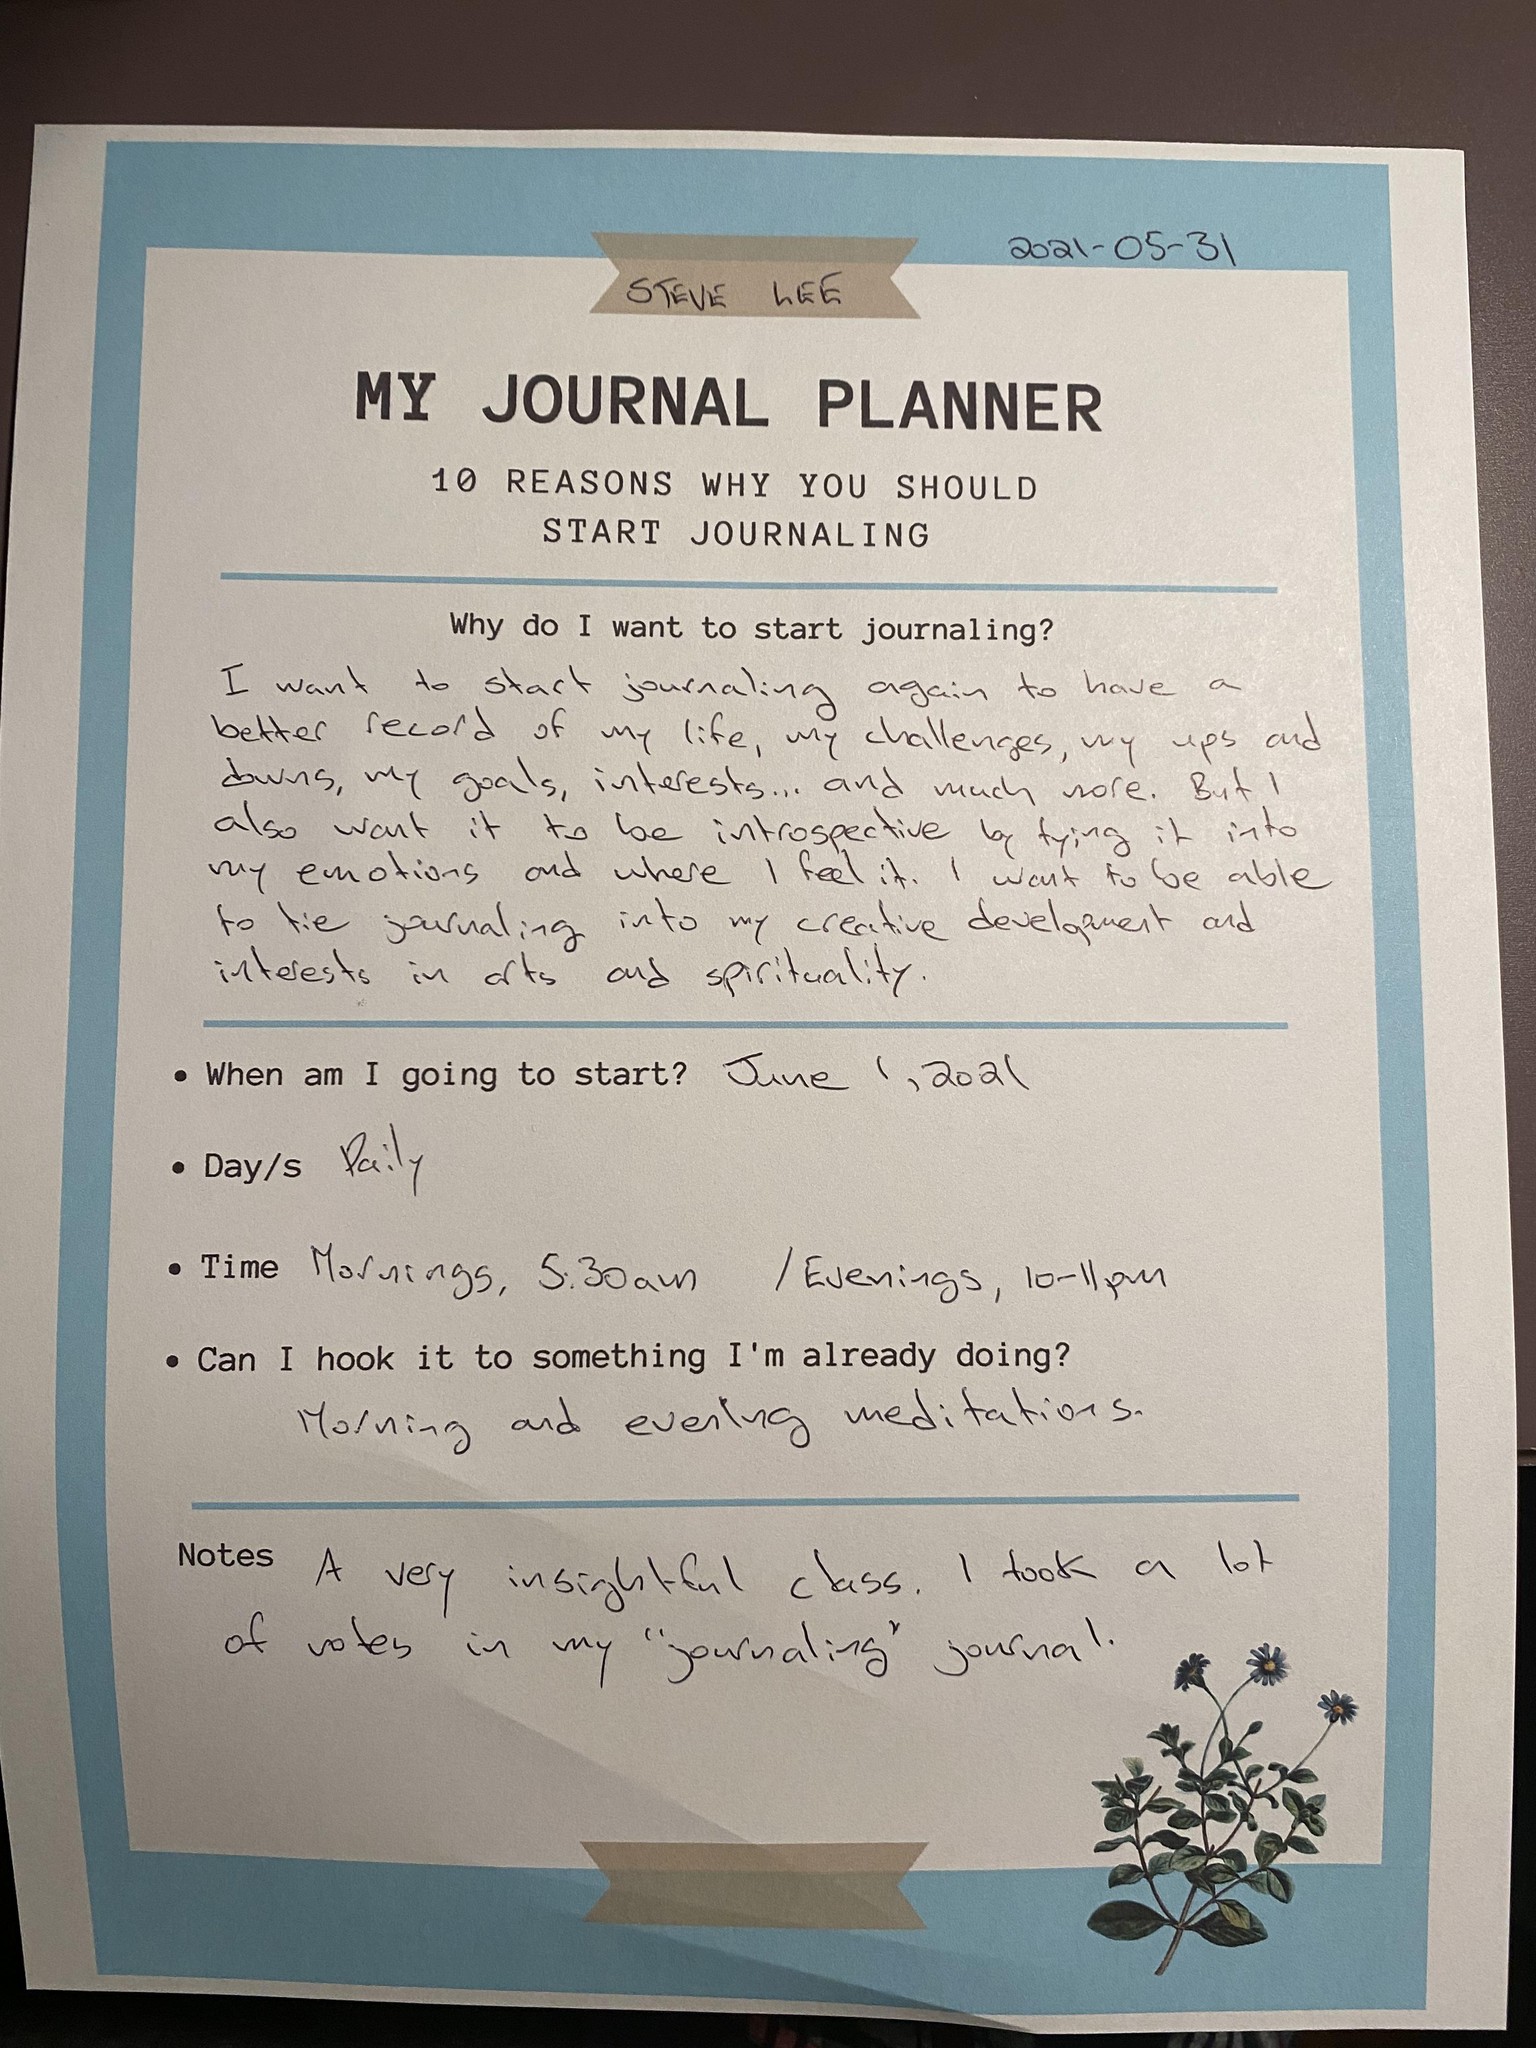 2021-05-31
STEVE LEE
MY JOURNAL PLANNER
10 REASONS WHY YOU SHOULD
START JOURNALING
Why do I want to start journaling?
I want to start journaling again to have a
better record of my life, my challenges, my ups and
downs, my goals, interests... and much more. But I
also want it to be introspective by tying it into
my emotions and where I feel it. I want to be able
to tie journaling into my creative development and
interests in arts and spirituality.
• When am I going to start? June 1, 2021
• Day/s Daily
• Time Mornings, 5:30am / Evenings, 10-11pm
• Can I hook it to something I'm already doing?
Morning and evening meditations.
Notes A very insightful class. I took a lot
of notes in my "journaling" journal.